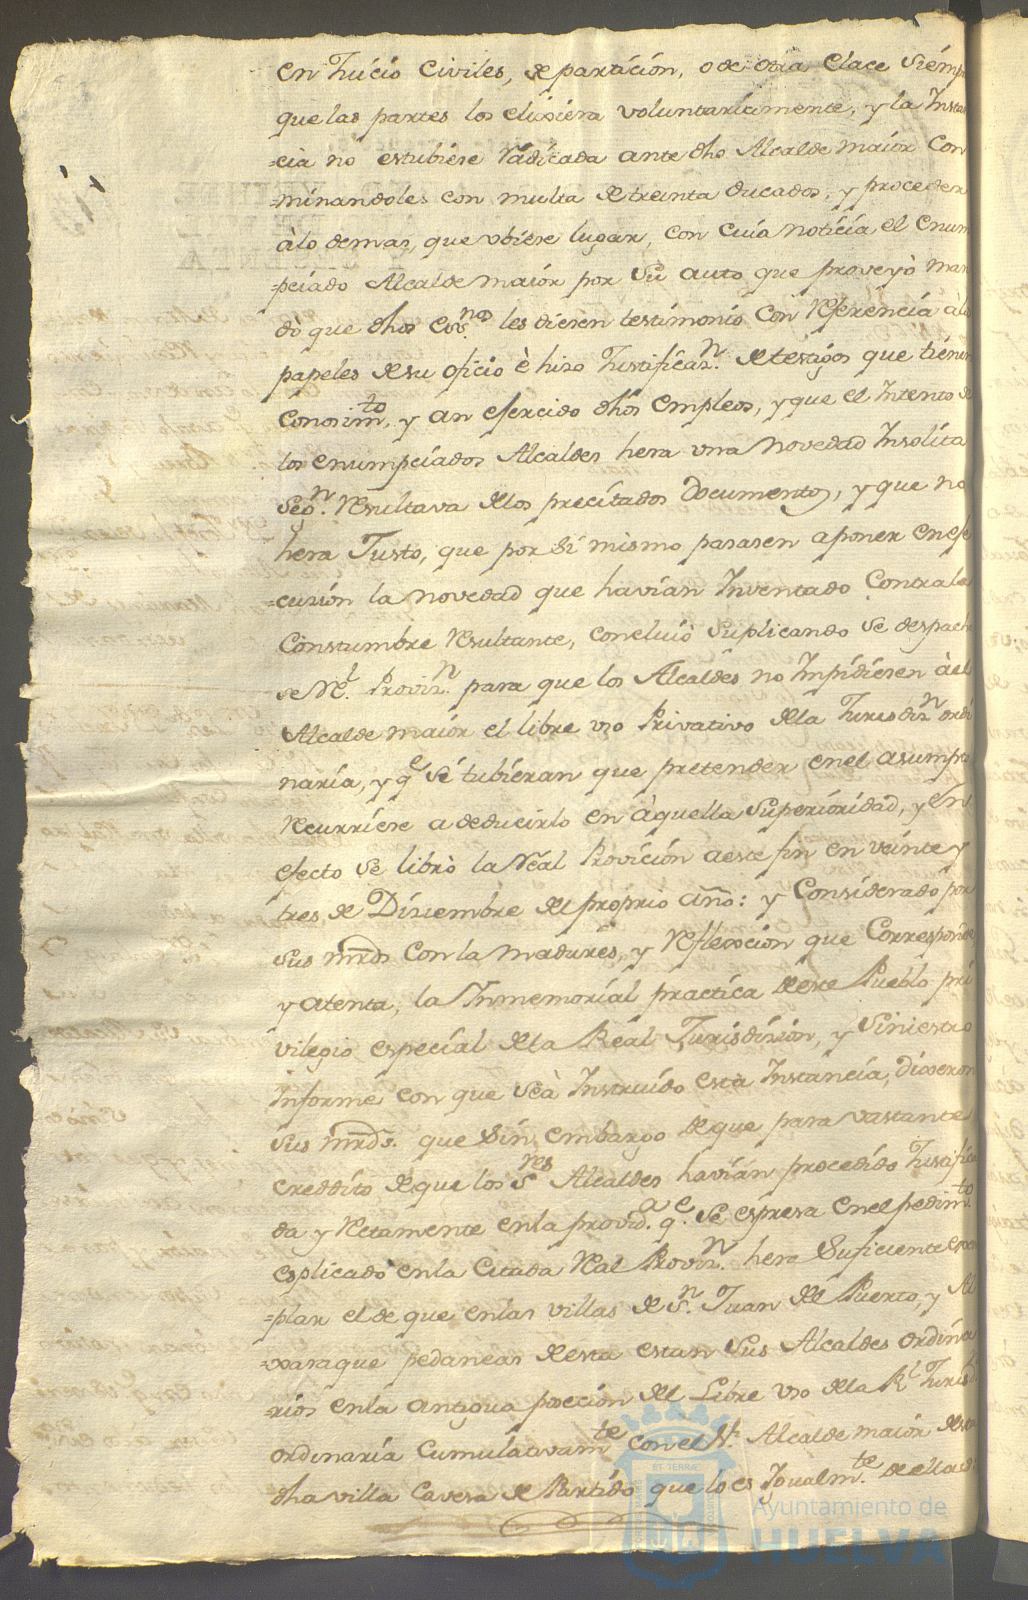 en Juicio Civiles, departición, o de otra clace siémp
que las partes los elixiera voluntariamente, y la Instan
=cia no estubiese Rádicada ante dho Alcalde maíor Con
=minandoles con multa de treinta ducados, y proceder
àlo demas, que vbiese lugar, con cuía noticía el enum
=pciado Alcalde maíor por su auto que proveyò man
dò que dhos esSnos les diesen testimonio con Referencía àlos
papeles desu oficio è hizo Justificazn. de testigos que tiénen
Conosimto, y an exercido dhos empleos, y que el Intento de
los enumpciados Alcaldes hera vna novedad Insolita
Segn. Resultava delos precitados Documentos, y que no
hera Justo, que por si mismo pasasen aponer en exe
=cución la novedad que havían Inventado Contrala
Constumbre Resultante, concluió suplicando se despach
se Rl. Provizn. para que los Alcaldes no Inpidiesen àel
Alcalde maíor el libre vso Privativo dela Jurisdizn ordi
naría, y qe sè tubieran que pretender enel asumpto
Recurriese a deducirlo en àquella Superioridad, y en
efecto se librò la Reál Provición aeste fin en veinte y
tres de Diziembre del próprio año: y Considerado por
sus mrds Con la madurés, y Reflexción que Corresponde
y atenta, la Inmemoríal practíca deeste Pueblo pri
vilegio especíal dela Reál Jurisdizión, y Siniestro
Informe con que seà Instruído esta Instancía, dixeron
sus mrds. que sin embargo deque para vastante
creddito deque los Sres Alcaldes havían procedído Justifica
da y Rectamente enla provida. qe. se expresa enel pedimto
esplicado enla Citada Real Provizn. hera Suficiente exem
=plar el de que enlas villas de Sn. Juan del Puerto, y Al
=xaraque pedaneas desta estan sus Alcaldes ordina
=rios enla antigua poseción del Libre vso dela Rl Jurisdn.
ordinaría Cumulativamte con el Sr. Alcalde maíor desta
dha villa Cavesa de Partído que lo es Igualmte. de ellas

Ayuntamiento de
HUELVA